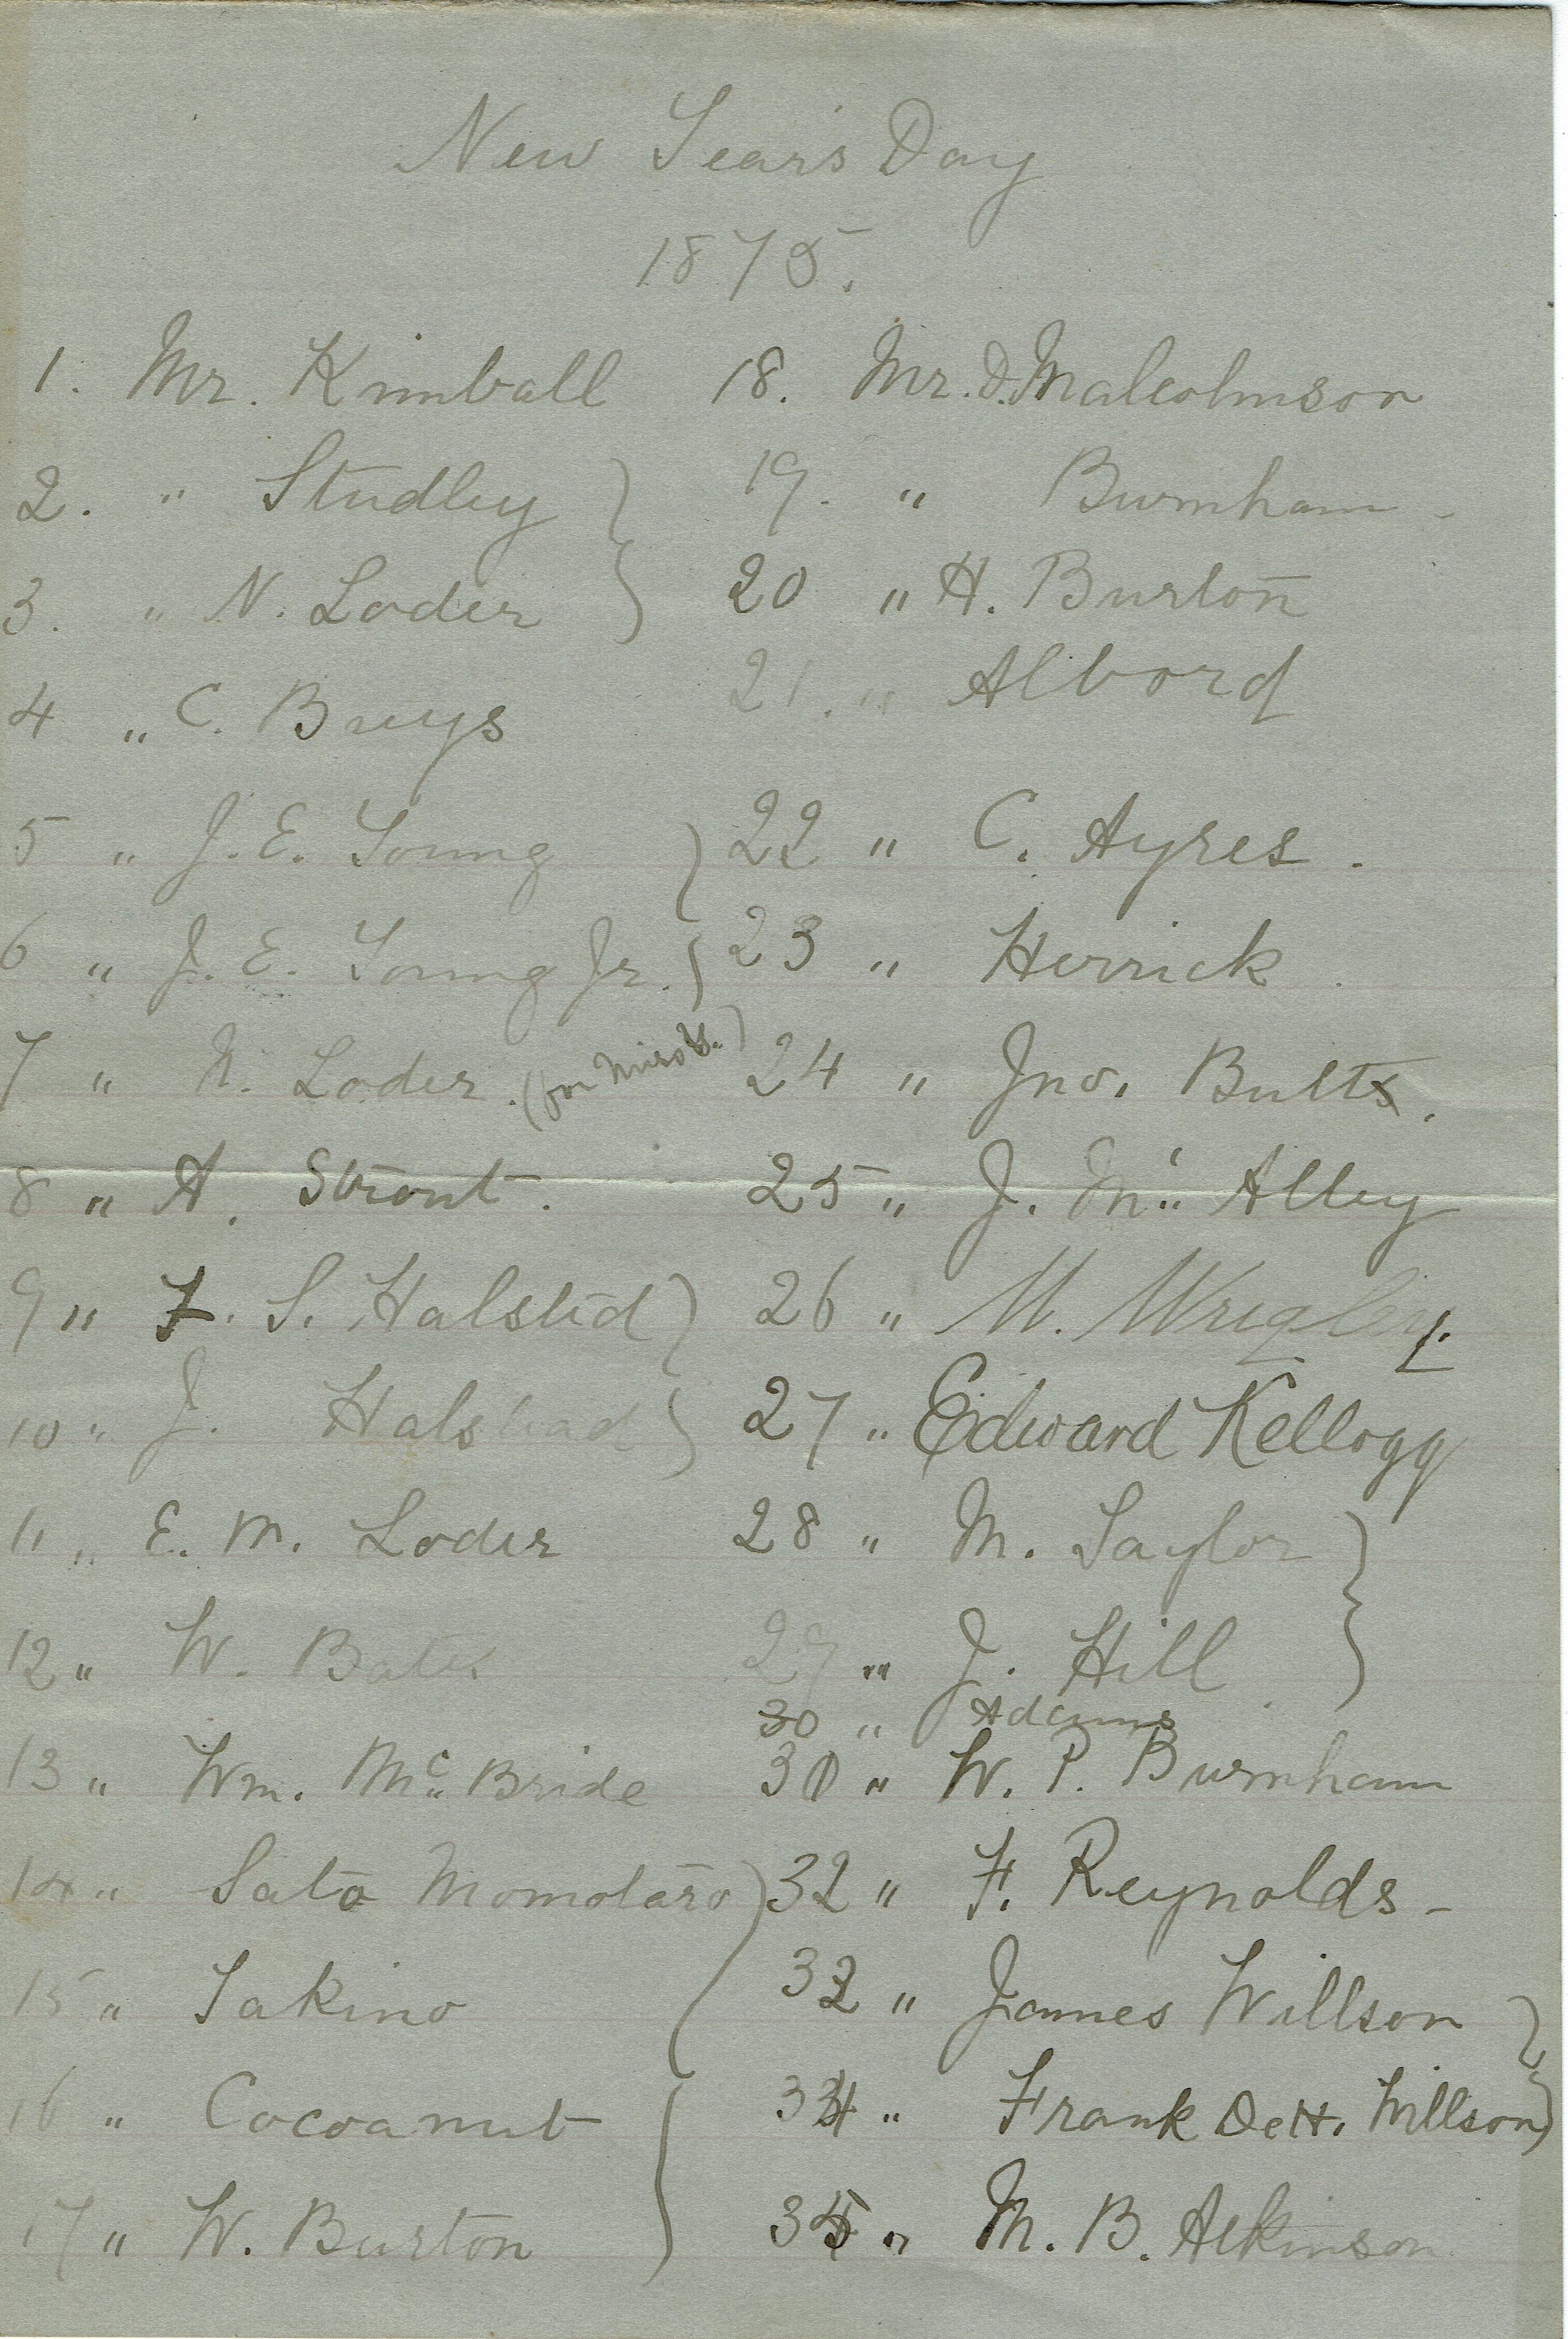 New Years Day
1875.
1. Mr. Kimball
2. " Studley
3. " N. Loder
4 " C. Buys
5 " J. E. Young
6 " J. E. Young Jr.
7 " N. Loder. (for
8 " A. Strout.
9 " F. S. Halsted
10 " J. Halstead
11 " E. M. Loder
12 " W. Bates
13 " Wm. Mc Bride
14 " Sato Momotaro
15 " Takino
16 " Cocoanut
17 " W. Burton
18. Mr. D. Malcolmson
19. " Burnham -
20 " H. Burton
21. " Alvord
22 " C. Ayres.
23 " Herrick.
24 " Jno. Butts.
25 " J. Mc Alley
26 " M. Wrigley.
27 " Edward Kellogg
28 " M. Taylor
29 " J. Hill
30 " Adams
31 " W. P. Burnham
32 " F. Reynolds -
33 " James Willson
34 " Frank DeH. Willson
35 " M. B. Atkinson